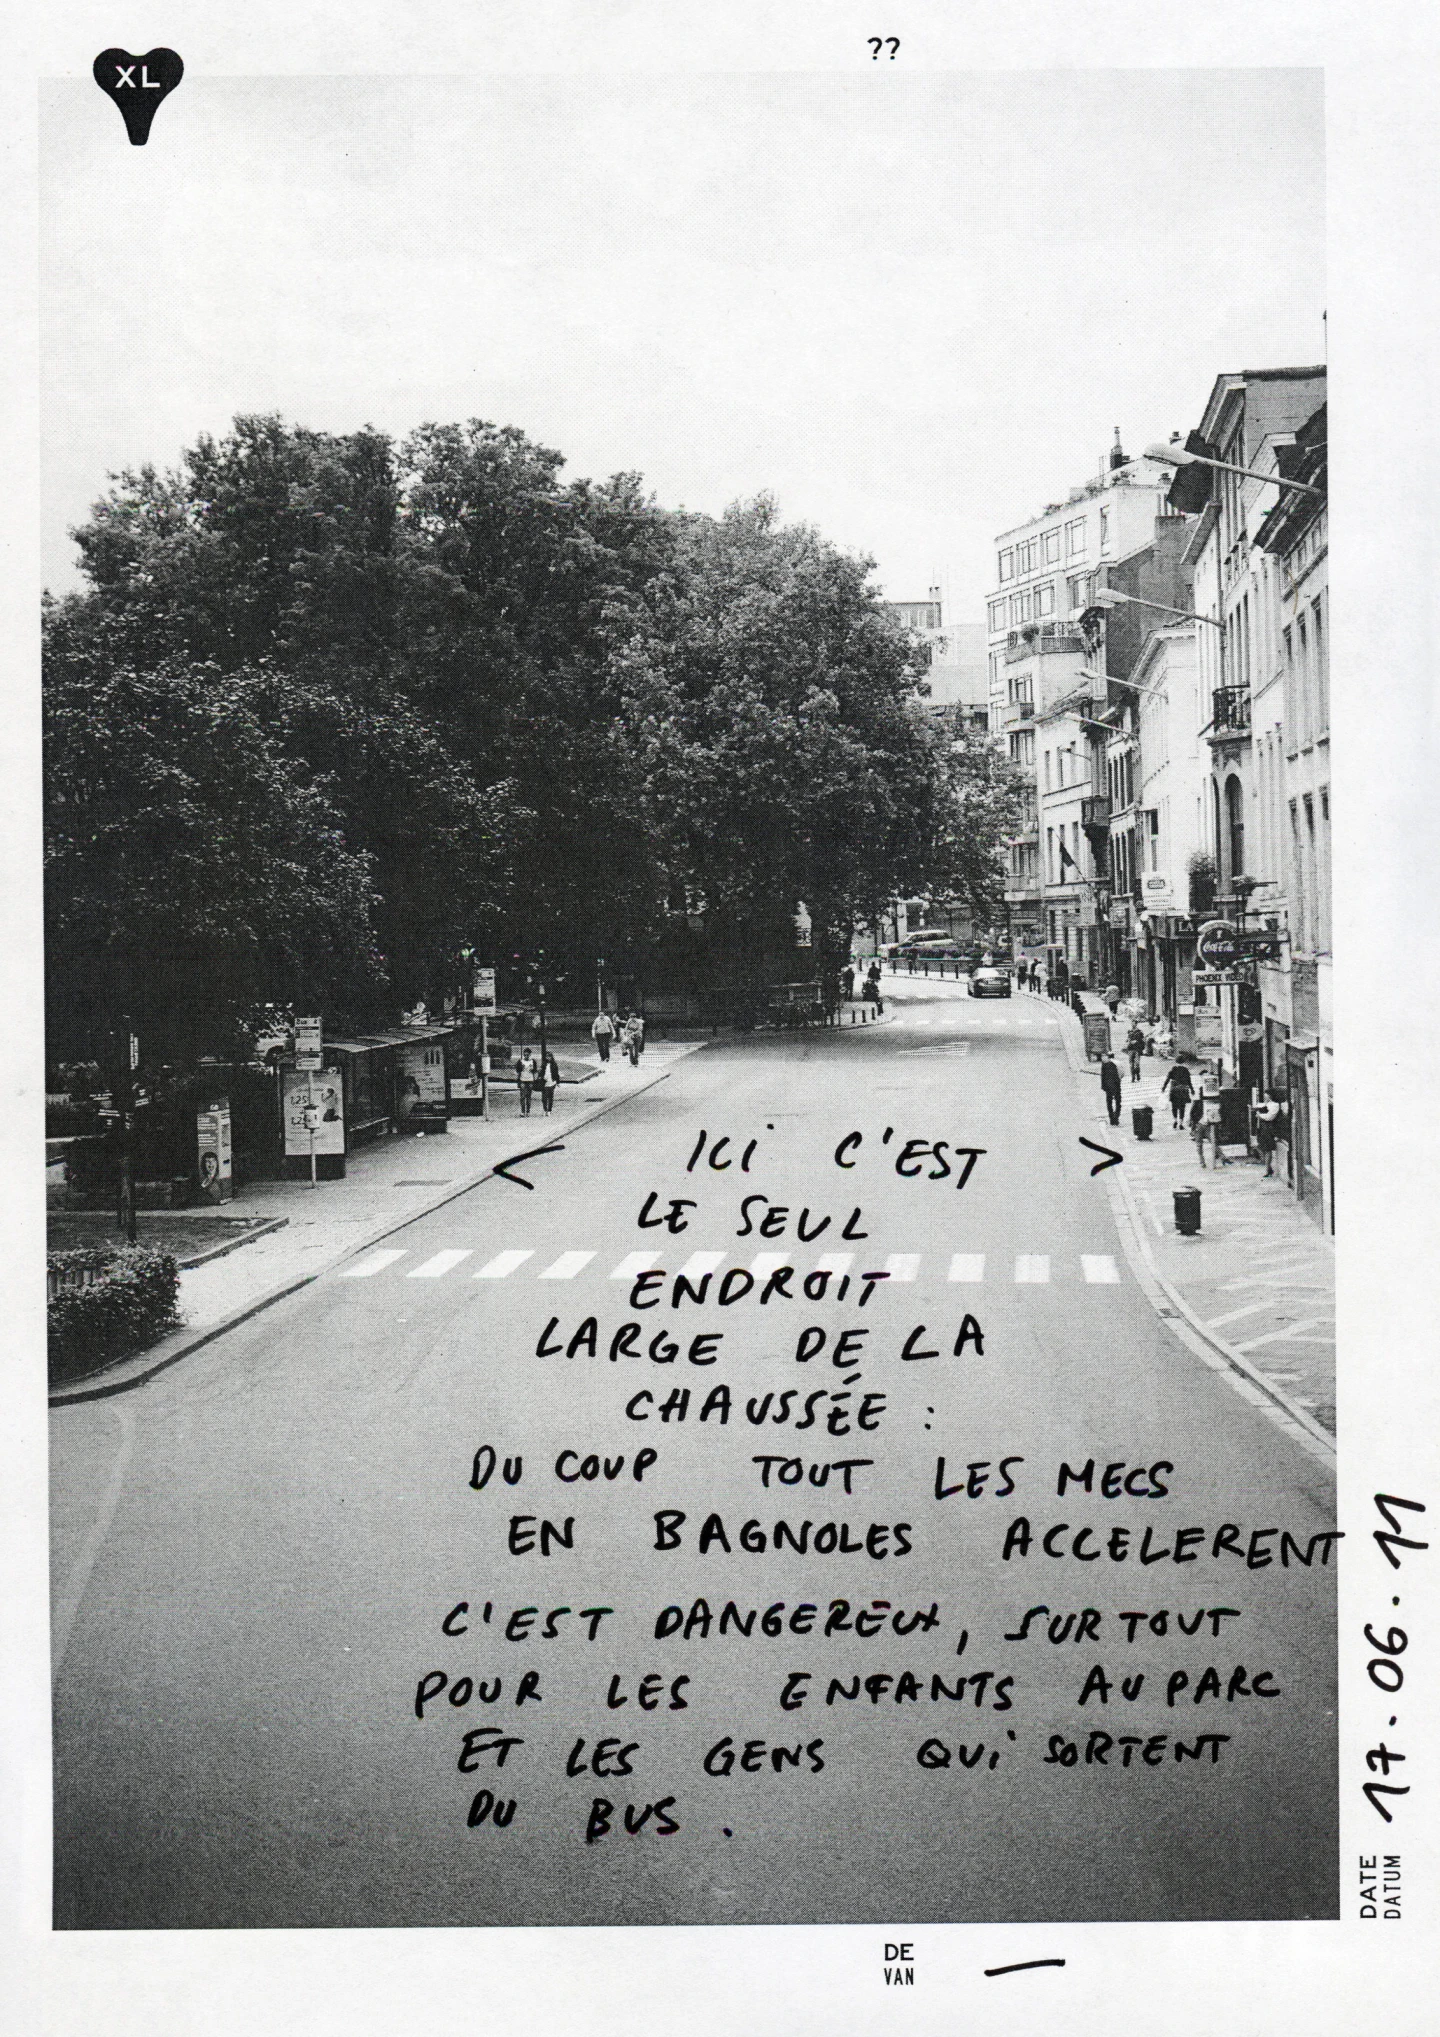 ??
XL
Coca-Cola
< ICI C'EST >
LE SEUL
ENDROIT
LARGE DE LA
CHAUSSÉE :
DU COUP TOUT LES MECS
EN BAGNOLES ACCELERENT
C'EST DANGEREUX, SURTOUT
POUR LES ENFANTS AU PARC
ET LES GENS QUI SORTENT
DU BUS.
DATE 17.06.11
DATUM
DE —
VAN